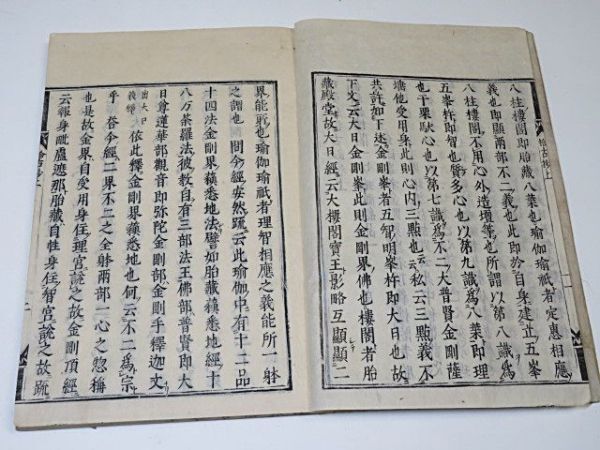 八柱樓閣即胎藏八葉也瑜伽瑜祇者定惠相應
義也即顯兩部不二義也此即莂自身建立五峯
八柱樓閣不用心外造壇等也所謂以第八識爲
五峯杵即智也質多心也以第九識爲八葉即理
也干栗馱心也以第七識爲不二大普賢金剛薩
埵他受用身此則心内三點也云私云三點義不
共許如下述金剛峯者五智明峯杵即大日也故
下文云大日金剛峯此則金剛界佛也樓閣者胎
藏殿堂故大日經云大樓閣寶王影略互顯顯二
界能前也瑜伽瑜祇者理智相應之義能所一躰
之謂也問今經安然䟽云此瑜伽中有十二品
十四法金剛界蘓悉地法譬如胎藏蘓悉地經十
八万荼羅法彼教自有三部法王佛部普賢即大
日尊蓮華部觀音即弥陀金剛部金剛手釋迦文
出大日義釋依此釋金剛界蘓悉地也何云不二爲宗
乎荅今經二界不二之全躰兩部一心之惣稱
也是故金界自受用身住理宮説之故金剛頂經
云報身毗盧遮那胎藏自性身住智宮説之故䟽